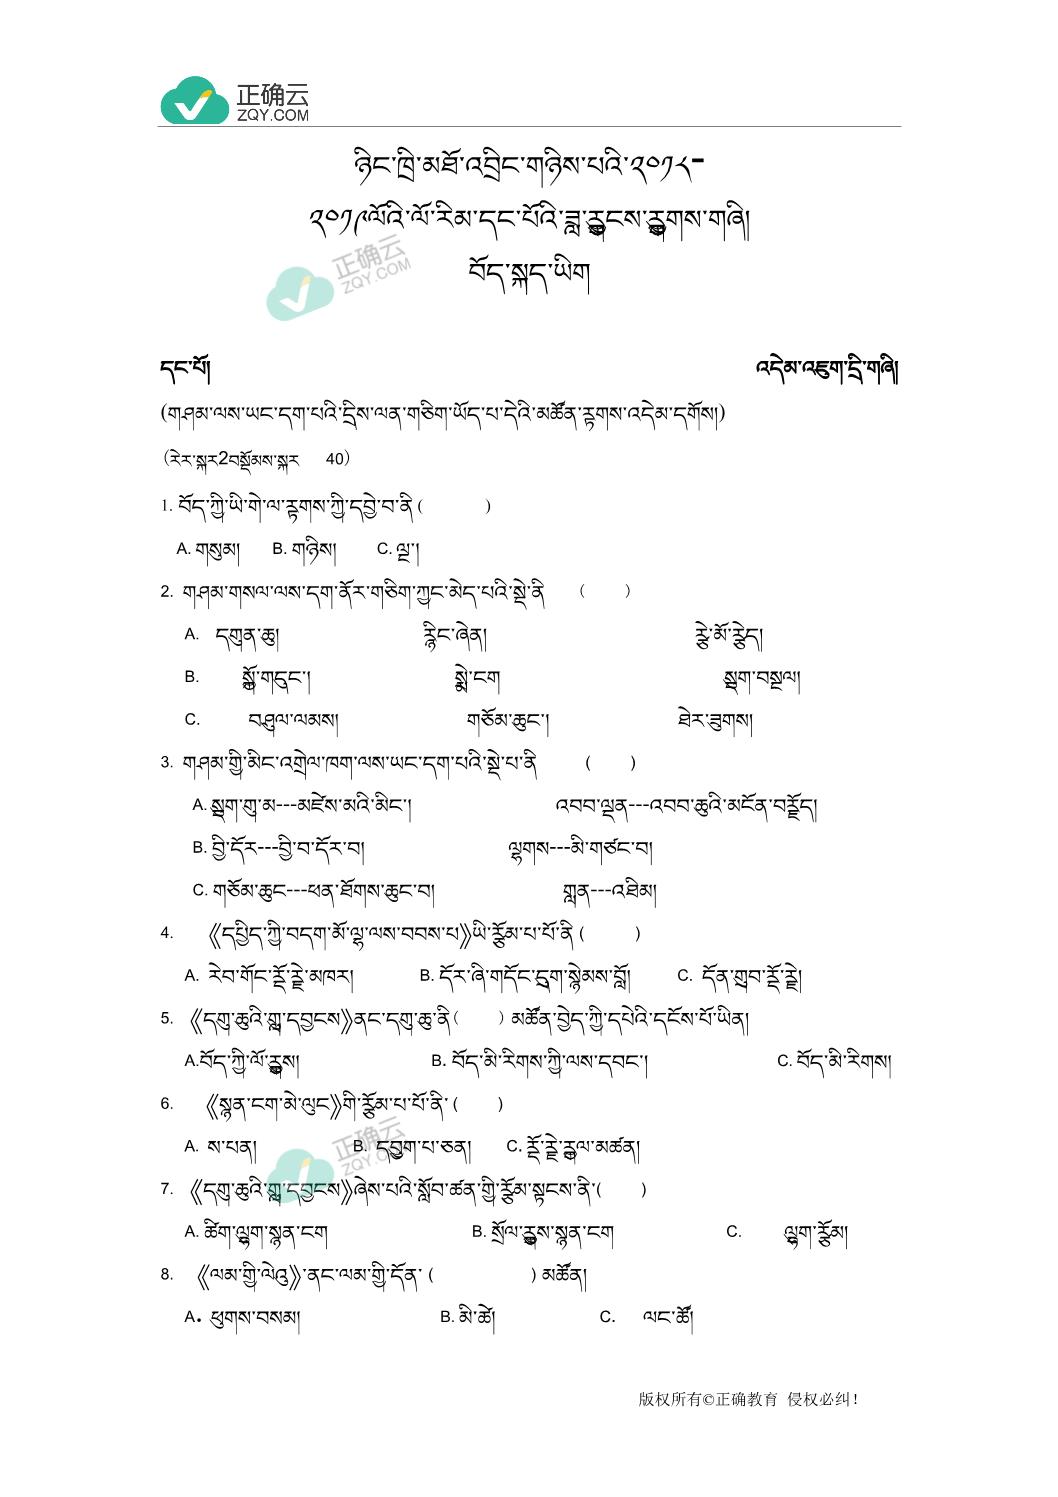 正确云
ZQY.COM
ཉིང་ཁྲི་མཐོ་འབྲིང་གཉིས་པའི་༢༠༡༨-
༢༠༡༩ལོའི་ལོ་རིམ་དང་པོའི་ཟླ་རྒྱུངས་རྒྱུགས་གཞི།
བོད་སྐད་ཡིག
正确云
ZQY.COM
དང་པོ། འདེམ་འཇུག་དྲི་གཞི།
(གཤམ་ལས་ཡང་དག་པའི་དྲིས་ལན་གཅིག་ཡོད་པ་དེའི་མཚོན་རྟགས་འདེམ་དགོས།)
(རེར་སྐར2བསྡོམས་སྐར 40)
1. བོད་ཀྱི་ཡི་གེ་ལ་རྟགས་ཀྱི་དབྱེ་བ་ནི ( )
A. གསུམ། B. གཉིས། C. ལྔ་།
2. གཤམ་གསལ་ལས་དག་ནོར་གཅིག་ཀྱང་མེད་པའི་སྡེ་ནི ( )
A. དགུན་ཆུ། རྙིང་ཞེན། རྩེ་མོ་རྩེད།
B. སྐྱོ་གདུང་། སྨེ་ངག སྡུག་བསྔལ།
C. བཤུལ་ལམས། གཅོམ་ཆུང་། ཐེར་ཟུགས།
3. གཤམ་གྱི་མིང་འགྲེལ་ཁག་ལས་ཡང་དག་པའི་སྡེ་པ་ནི ( )
A. སྡུག་གུ་མ---མཛེས་མའི་མིང་། འབབ་ལྡན---འབབ་ཆུའི་མངོན་བརྗོད།
B. བྱི་དོར---བྱི་བ་དོར་བ། ལྷགས---མི་གཙང་བ།
C. གཅོམ་ཆུང---ཕན་ཐོགས་ཆུང་བ། གླན---འཐིམ།
4. 《དཔྱིད་ཀྱི་བདག་མོ་ལྷ་ལས་བབས་པ》ཡི་རྩོམ་པ་པོ་ནི ( )
A. རེབ་གོང་རྡོ་རྗེ་མཁར། B. དོར་ཞི་གདོང་དྲུག་སྙེམས་བློ། C. དོན་གྲུབ་རྡོ་རྗེ།
5. 《དགུ་ཆུའི་གླུ་དབྱངས》ནང་དགུ་ཆུ་ནི( ) མཚོན་བྱེད་ཀྱི་དཔེའི་དངོས་པོ་ཡིན།
A.བོད་ཀྱི་ལོ་རྒྱུས། B. བོད་མི་རིགས་ཀྱི་ལས་དབང་། C. བོད་མི་རིགས།
6. 《སྙན་ངག་མེ་ལུང》གི་རྩོམ་པ་པོ་ནི་ ( )
A. ས་པན། B. དབྱུག་པ་ཅན། C. རྡོ་རྗེ་རྒྱལ་མཚན།
正确云
ZQY.COM
7. 《དགུ་ཆུའི་གླུ་དབྱངས》ཞེས་པའི་སློབ་ཚན་གྱི་རྩོམ་སྟངས་ནི་( )
A. ཚིག་ལྷུག་སྙན་ངག B. སྲོལ་རྒྱུས་སྙན་ངག C. ལྷུག་རྩོམ།
8. 《ལམ་གྱི་ལེའུ》་ནང་ལམ་གྱི་དོན་ ( ) མཚོན།
A. ཕུགས་བསམ། B. མི་ཚེ། C. ལང་ཚོ།
版权所有©正确教育 侵权必纠!